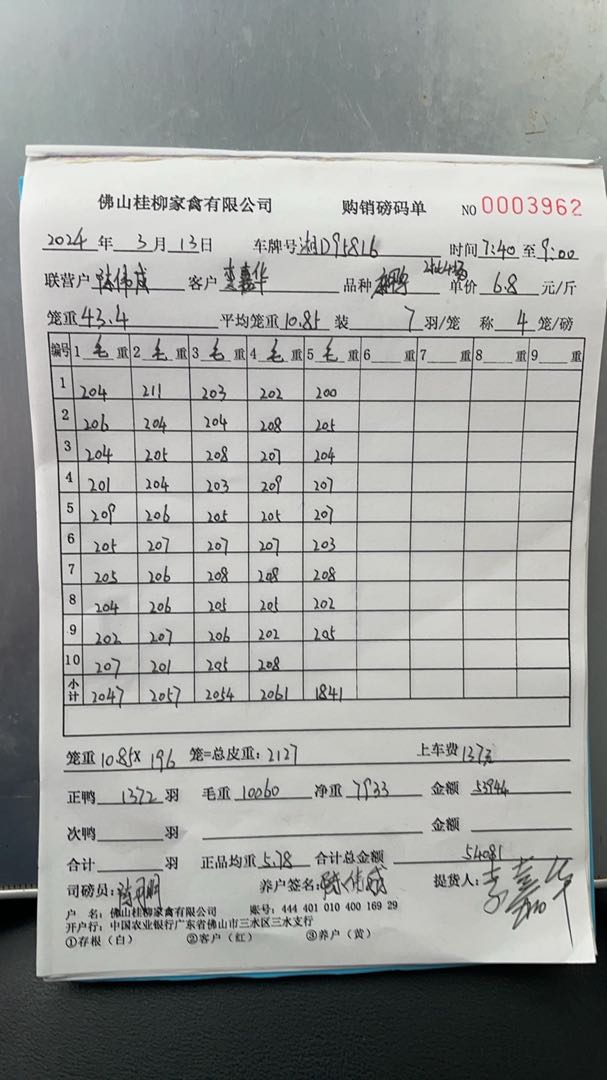 佛山桂柳家禽有限公司 购销磅码单 NO 0003962
2024 年 3 月 13 日 车牌号 湘D95816 时间 7:40 至 9:00
联营户 陈伟成 客户 李嘉华 品种 单价 6.8 元/斤
笼重 43.4 平均笼重 10.85 装 7 羽/笼 称 4 笼/磅
编号 1 毛 重 2 毛 重 3 毛 重 4 毛 重 5 毛 重 6 重 7 重 8 重 9 重
1 204 211 203 202 200
2 206 204 204 208 205
3 204 205 208 207 204
4 201 204 203 209 207
5 209 206 205 205 207
6 205 207 207 207 203
7 205 206 208 208 208
8 204 206 205 205 202
9 202 207 206 202 205
10 207 201 205 208
小计 2047 2057 2054 2061 1841
笼重 10.85× 196 笼=总皮重: 2127 上车费 137元
正鸭 1372 羽 毛重 10060 净重 7933 金额 53944
次鸭 羽 金额
合计 羽 正品均重 5.78 合计总金额 54081
司磅员: 养户签名: 陈伟成 提货人: 李嘉华
户 名: 佛山桂柳家禽有限公司 账号: 444 401 010 400 169 29
开户行: 中国农业银行广东省佛山市三水区三水支行
①存根（白） ②客户（红） ③养户（黄）